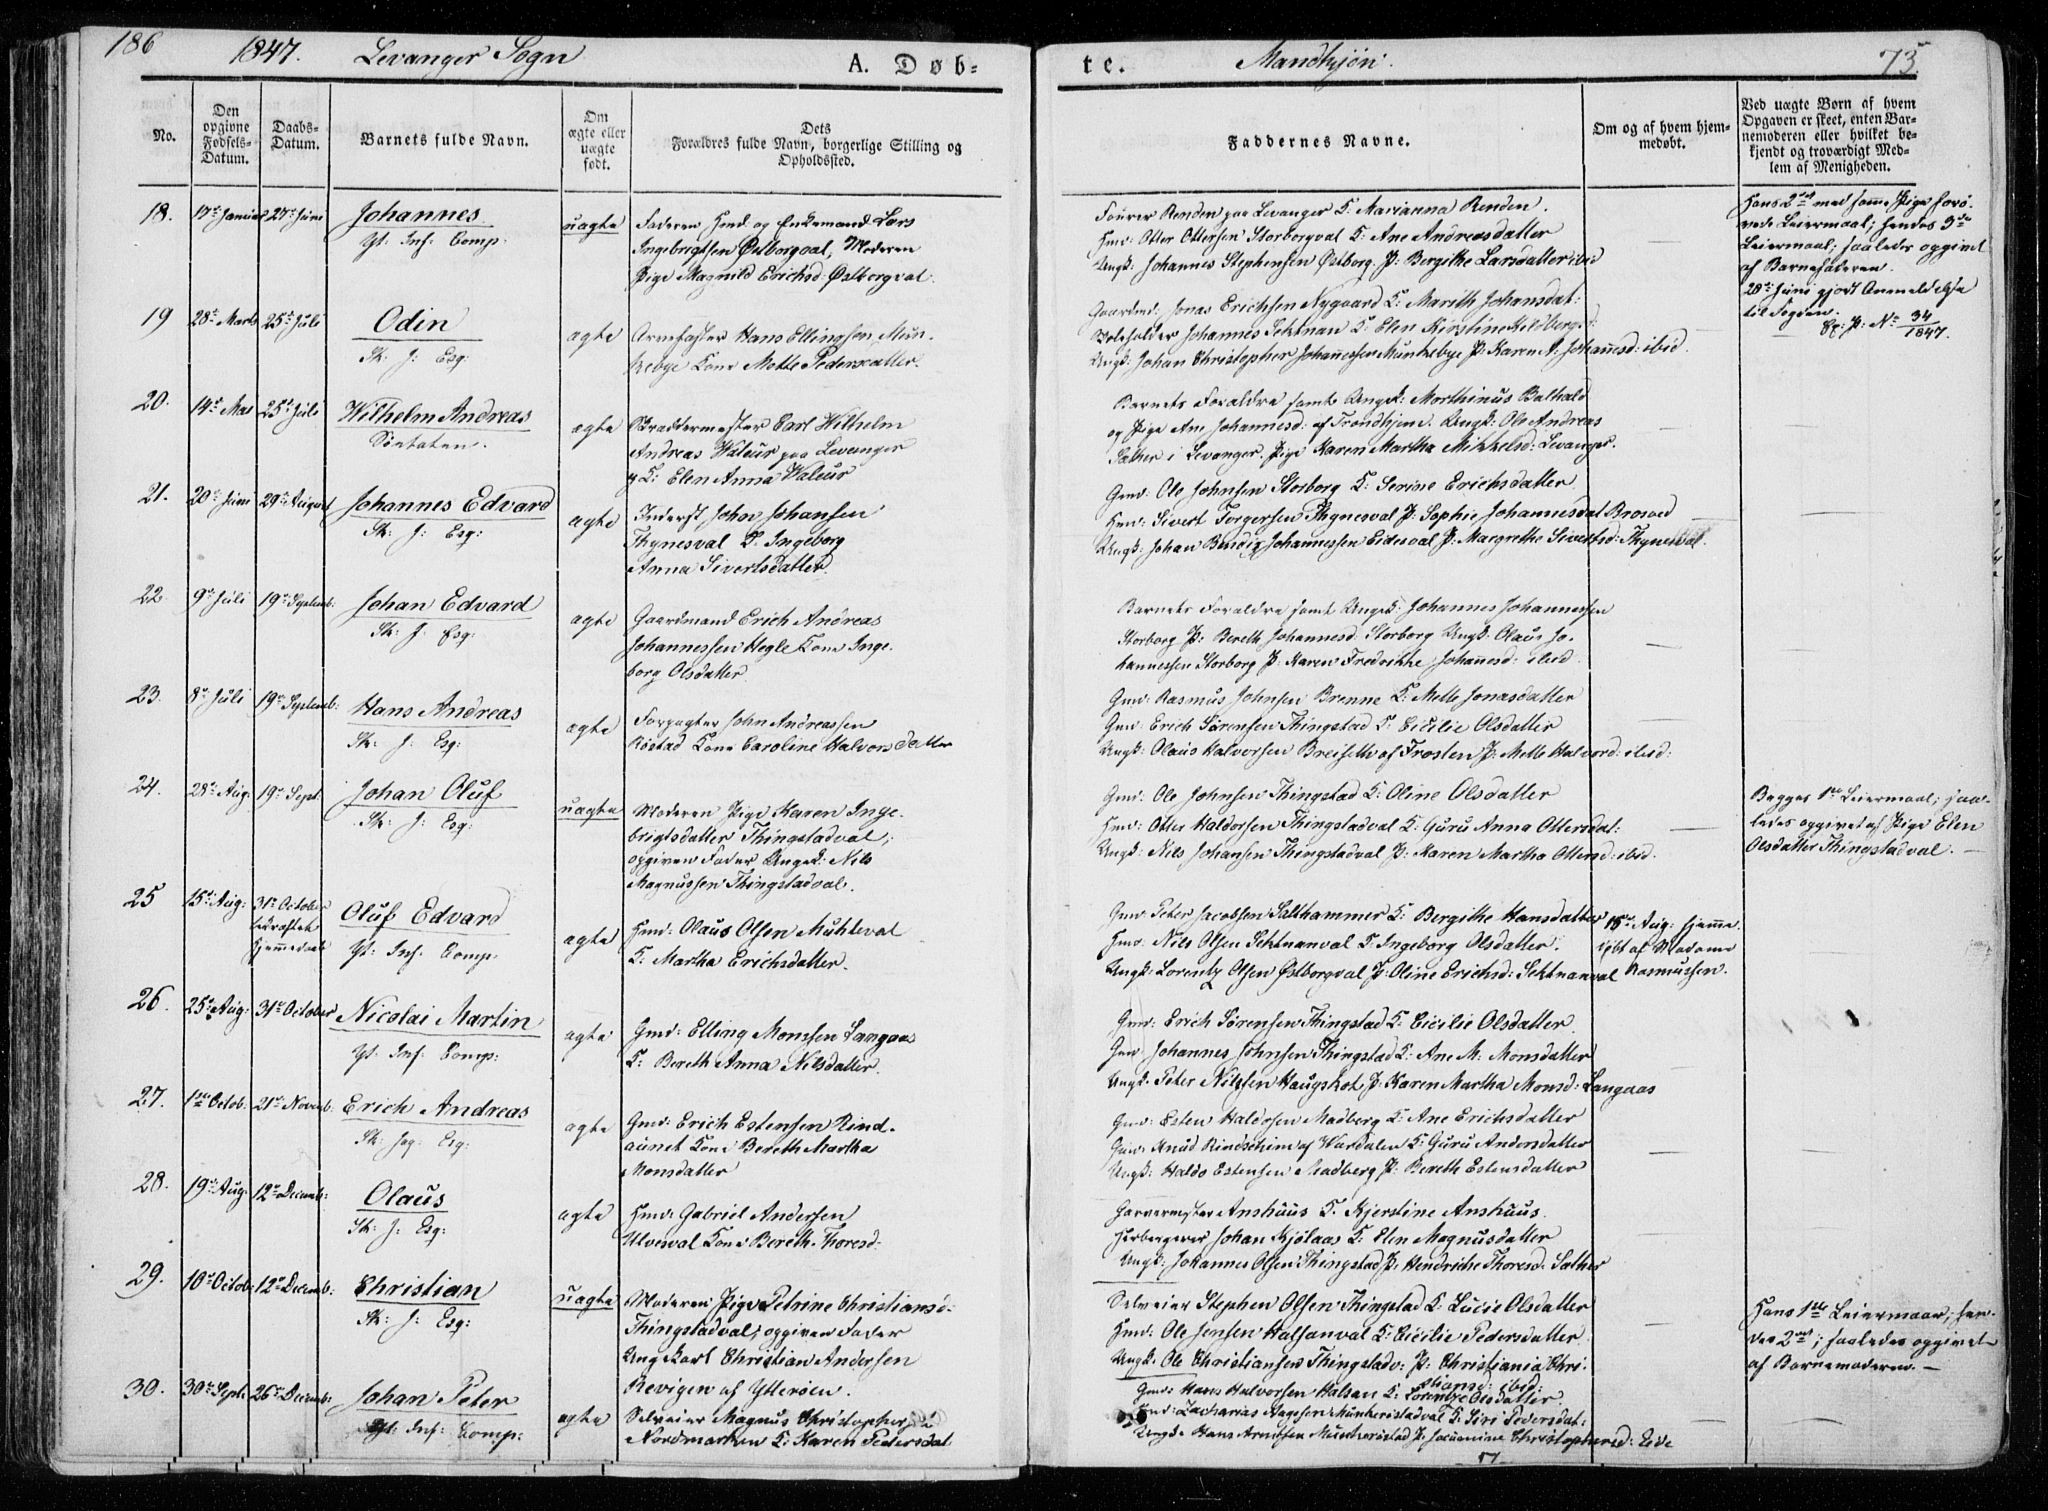 186
1847. Levanger Sogn
A. Døb-
te.
Mandkjön.
73.
No.
Den opgivne Fødsels-Datum.
Daabs-Datum.
Barnets fulde Navn.
Om ægte eller uægte født.
Dets Forældres fulde Navn, borgerlige Stilling og Opholdssted.
Faddernes Navne.
Om og af hvem hjemmedøbt.
Ved uægte Børn af hvem Opgaven er skeet, enten Barnemoderen eller hvilket bekjendt og troværdigt Medlem af Menigheden.
18. 17de Januar 27de Juni Johannes uægte Faderen Hmd og Enkemand Lars
Yt: Inf: Comp: Ingebrigtsen Østborgval, Moderen
Pige Magnild Erichsd: Østborgval.
Fourer Renden paa Levanger K: Marianna Renden.
Hmd: Otter Ottersen Storborgval K: Ane Andreasdatter
Ungk: Johannes Stephensen Østborg. P: Bergithe Larsdatter ibid
Hans 2det med samme Pige
Leiermaal; hendes 3de
Leiermaal; saaledes opgivet
af Barnefaderen.
28de Juni gjort Anmeldelse
til Fogden. No 34/1847.
19 28de Marts 25de Juli Odin ægte Hans Ellingsen Mun-
Sk: J: Esq: kebye Kone Mette Pedersdatter.
Gaardmd: Jonas Erichsen Nygaard K: Marith Johansdat:
Johannes Sektnan K: Elen Kirstine
Ungk: Johan Christopher Johannessen Munkebye P: Karen A: Johannesd: ibid.
20. 14de Mai 25de Juli Wilhelm Andreas ægte Carl Wilhelm
Andreas Waleur paa Levanger
og K: Elen Anna Waleur
Barnets Forældre samt Ungk: Morthinus Balthald
og Pige Ane Johannesd: af Trondhjem. Ungk: Ole Andreas
Sæther i Levanger. Pige Karen Martha Mikkelsd: Levanger.
21. 20de Juni 29de August Johannes Edvard ægte Inderst John Johansen
Sk: J: Esq: Thynesval K. Ingeborg
Anna Sivertsdatter.
Gmd: Ole Johnsen Storborg K: Serine Erichsdatter
Hmd: Sivert Torgersen Thynesval P: Sophie Johannesdat
Ungk: Johan Johannessen Eidesval P: Margrethe Sivertsd: Thynesval.
22. 9de Juli 19de Septemb: Johan Edvard ægte Gaardmand Erich Andreas
Sk: J: Esq: Johannessen Hegle Kone Inge-
borg Olsdatter
Barnets Forældre samt Ungk: Johannes Johannessen
Storborg P: Bereth Johannesd: Storborg Ungk: Olaus Jo-
hannessen Storborg P: Karen Fredrikke Johannesd: ibid.
23. 8de Juli 19de Septemb: Hans Andreas ægte Forpagter John Andreassen
Sk: J: Esq: Røstad Kone Caroline Halvorsdatter
Gmd: Rasmus Johnsen Brenne K: Mette Jonasdatter
Gmd: Erich Sørensen Thingstad K: Cicilie Olsdatter
Ungk: Olaus Halvorsen Breiseth af Frosten P: Mette Halvorsd: ibid:
24. 28de Aug: 19de Sept: Johan Oluf uægte Moderen Pige Karen Inge-
Sk: J: Esq: brigtsdatter Thingstadval;
opgiven Fader Ungk: Nils
Magnussen Thingstadval.
Gmd: Ole Johnsen Thingstad K: Oline Olsdatter
Hmd: Otter Haldorsen Thingstadval K: Guru Anna Ottersdat:
Ungk: Nils Johansen Thingstadval P: Karen Martha Ottersd: ibid.
Begges 1ste Leiermaal; saa-
ledes opgivet af Pige Elen
Olsdatter Thingstadval.
25 15de Aug: 31te October Oluf Edvard ægte Hmd: Olaus Olsen Muhleval
Hjemmedaab Yt: Inf: Comp: K: Martha Erichsdatter.
Gmd Peter Jacobsen Salthammer K: Bergithe Hansdatter
Hmd: Nils Olsen Sektnanval K: Ingeborg Olsdatter.
Ungk: Lorentz Olsen Østborgval P: Oline Erichsd: Sektnanval
15de Aug: hjemme-
døbt af Madame
Rasmussen.
26. 25de Aug: 31te October Nicolai Martin ægte Gmd: Elling Monssen Langaas
Yt: Inf: Comp: K: Bereth Anna Nilsdatter.
Gmd: Erich Sørensen Thingstad K: Cicilie Olsdatter.
Gmd Johannes Johnsen Thingstad K: Ane M: Monsdatter
Ungk: Peter Nilssen Haugskot P: Karen Martha Monsd: Langaas
27. 1ste Octob: 21de Novemb: Erich Andreas ægte Gmd: Erich Estensen Rind-
Sk: Jæg: Esq: aunet Kone Bereth Martha
Monsdatter
Gmd: Esten Haldosen Madberg K: Ane Erichsdatter
Gmd: Knud Rindsehim af Værdalen K: Guru Andersdatter
Ungk: Haldo Estensen Madberg P: Bereth Estensdatter
28. 19de Aug: 12te Decemb: Olaus ægte Hmd: Gabriel Andersen
Sk: J: Esq: Ulvesval Kone Bereth Thoresd:
Garvermester Anshuus K. Kjerstine Anshuus.
Herbergerer Johan Kjølaas K: Elen Magnusdatter
Ungk: Johannes Olsen Thingstad P: Hendriche Thoresd: Sæther
29. 10de Octob: 12te Decemb: Christian uægte Moderen Pige Petrine Christiansd:
Sk: J: Esq: Thingstadval; opgiven Fader
Ungkarl Christian Andersen
Revigen af Ytterøen.
Selveier Stephen Olsen Thingstad K: Lucie Olsdatter
Hmd: Ole Jensen Halsanval K: Cicilie Pedersdatter
Ungk. Ole Christiansen Thingstadv: P: Christiania Chri-
stiansd: ibid:
Hans 1ste Leiermaal; hen-
des 2det; saaledes opgivet
af Barnemoderen.
30. 30te Sept: 26de Decemb: Johan Peter ægte Selveier Magnus Christophersen
Yt: Inf: Comp: Nordmarken K: Karen Pedersdat
Gmd: Hans Halvorsen Halsan K: Lorentze Olsdatter
Hmd: Zacharias Aagesen Munkeristadval K: Siri Pedersdat:
Ungk: Hans Arntsen Munkeristad P: Christophersd: Eide